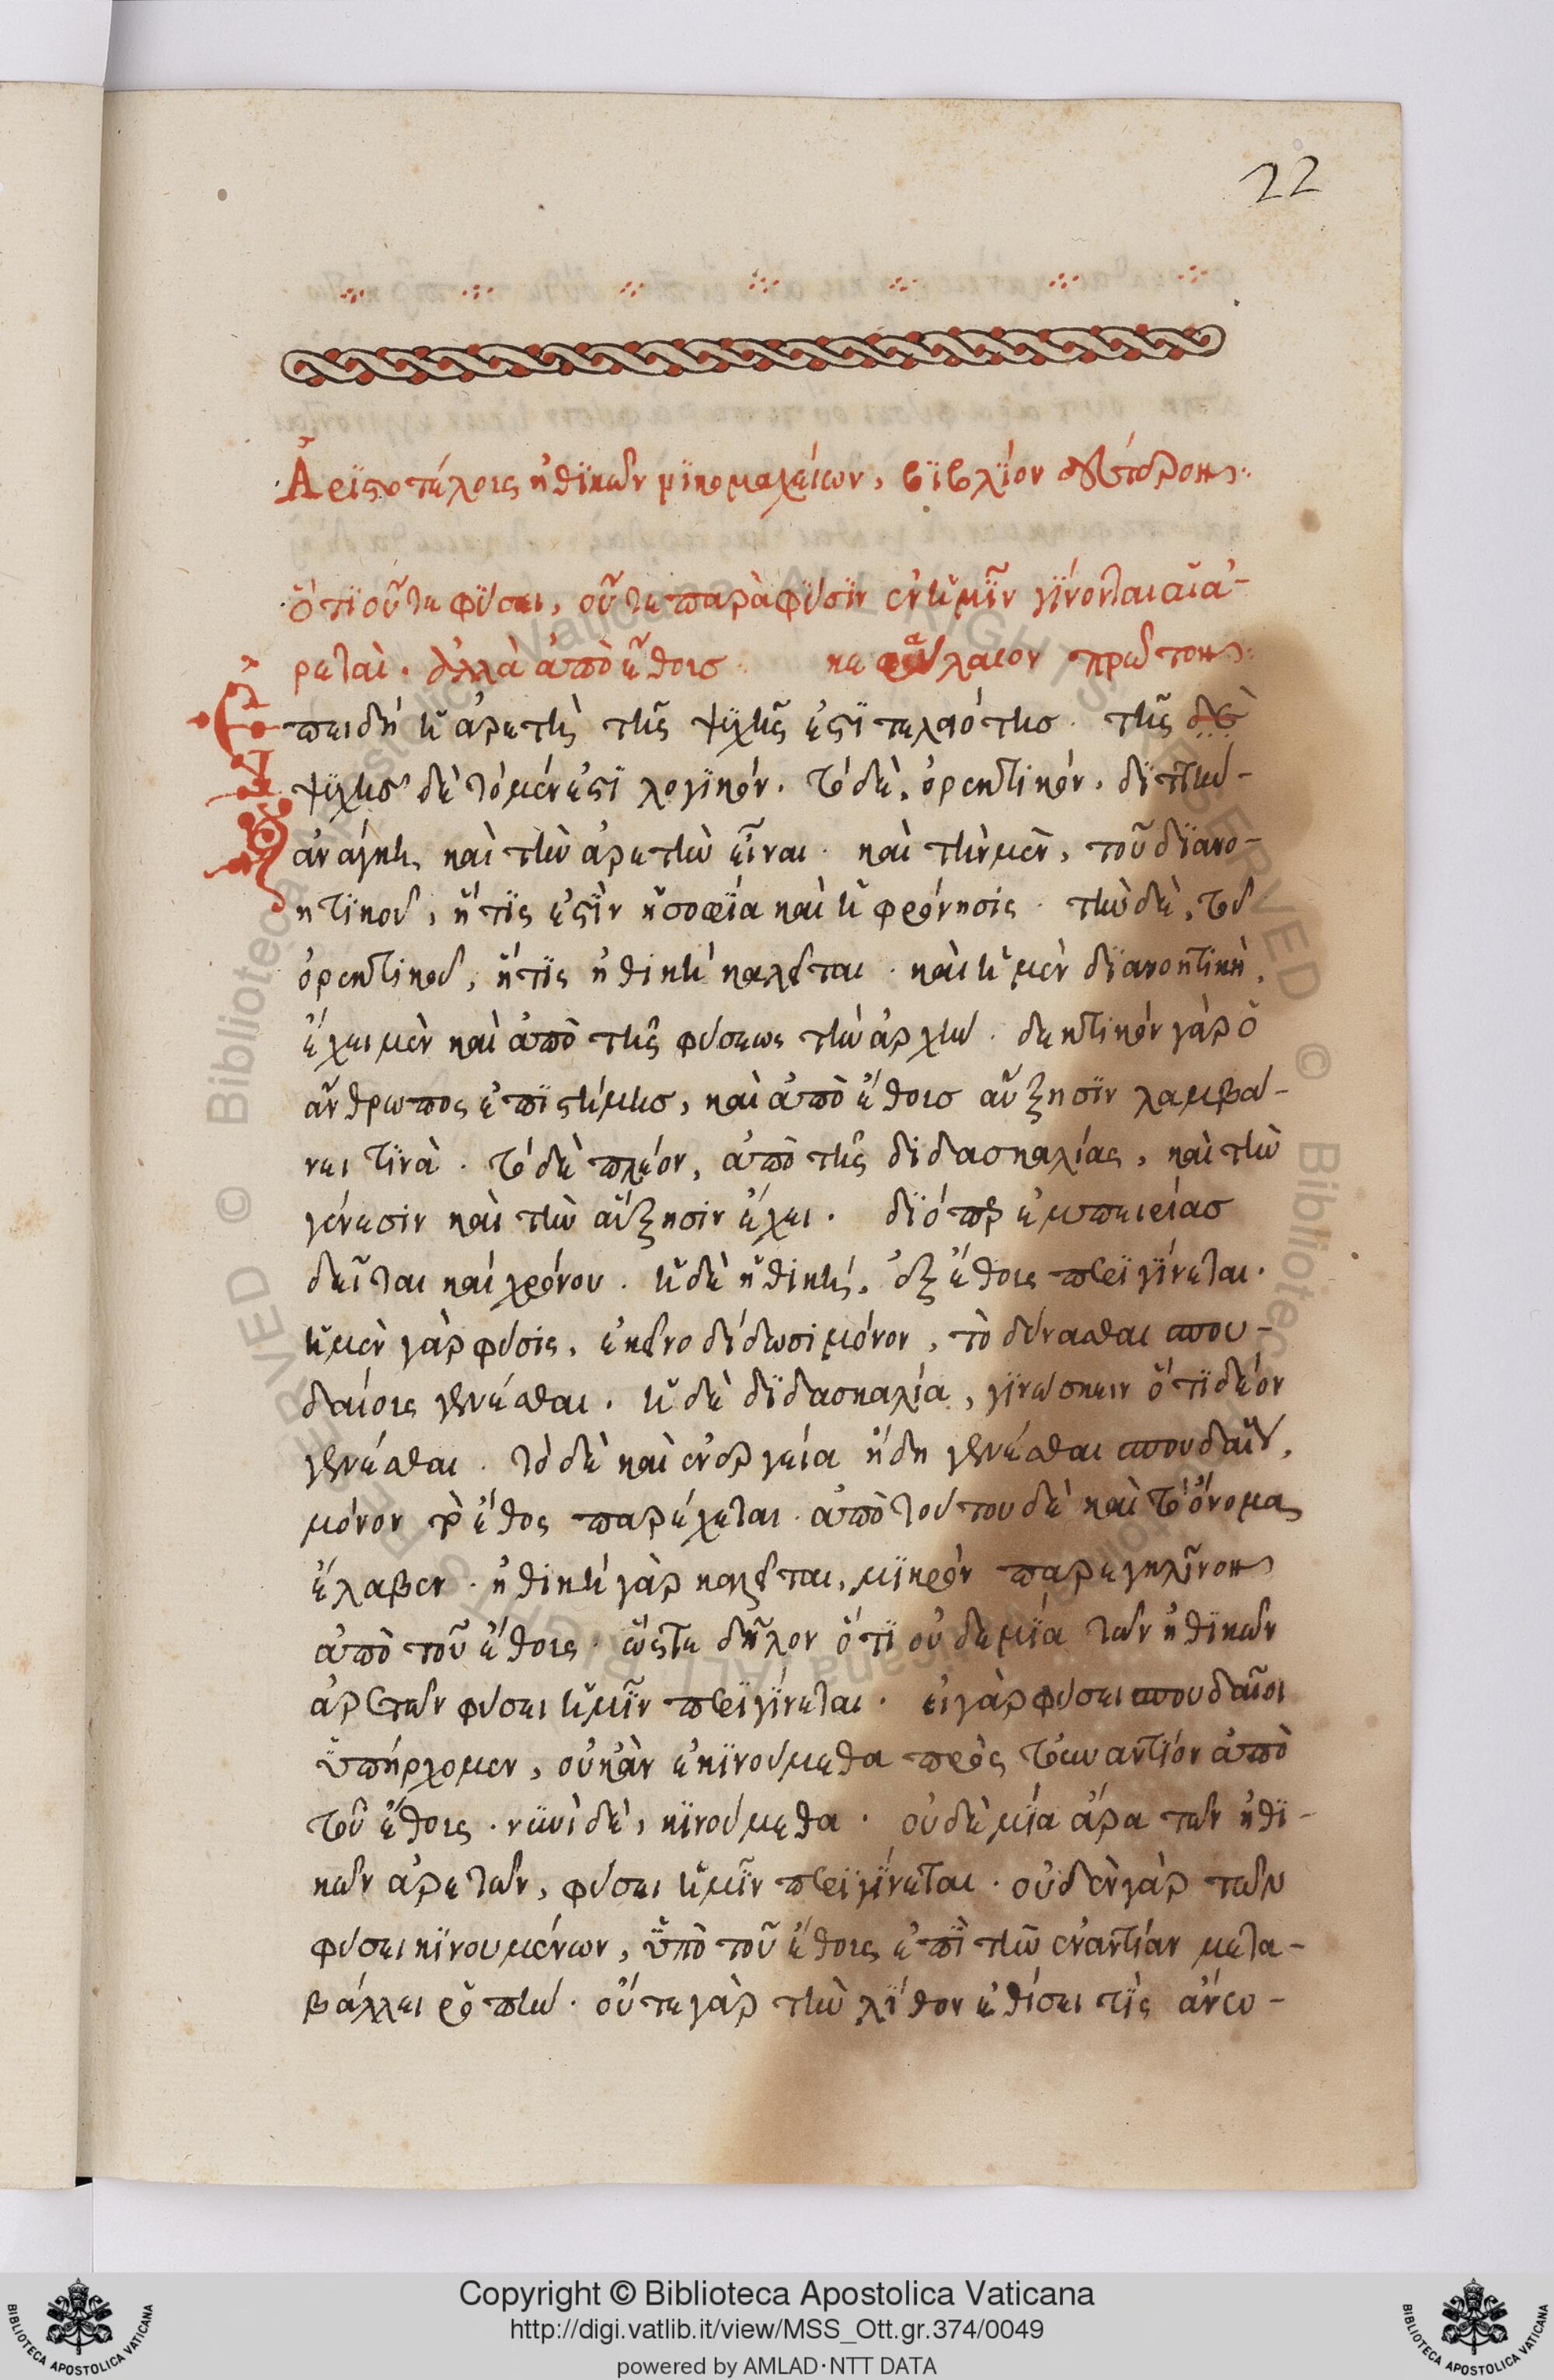 22
Ἀριστοτέλους ἠθικῶν νικομαχείων, βιβλίον δεύτερον:
ὅτι οὔτε φύσει, οὔτε παρὰ φύσιν ἐν ἡμῖν γίνονται αἱ ἀ-
ρεταὶ. ἀλλὰ ἀπὸ ἔθους κεφάλαιον πρῶτον:
Ἐπειδή ἡ ἀρετὴ τῆς ψυχῆς ἐστι τελειότης. τῆς δὲ
ψυχῆς δὲ τὸ μέν ἐστι λογικόν. τὸ δὲ, ὀρεκτικόν. διττὴν
ἀνάγκη, καὶ τὴν ἀρετὴν εἶναι. καὶ τὴν μὲν, τοῦ διανο-
ητικοῦ, ἥτις ἐστὶν ἡ σοφία καὶ ἡ φρόνησις. τὴν δὲ, τοῦ
ὀρεκτικοῦ, ἥτις ἠθικὴ καλεῖται. καὶ ἡ μὲν διανοητικὴ,
ἔχει μὲν καὶ ἀπὸ τῆς φύσεως τὴν ἀρχήν. δεκτικόν γὰρ ὁ
ἄνθρωπος ἐπιστήμης, καὶ ἀπὸ ἔθους αὔξησιν λαμβά-
νει τινὰ. τὸ δὲ πλέον, ἀπὸ τῆς διδασκαλίας, καὶ τὴν
γένεσιν καὶ τὴν αὔξησιν ἔχει. διόπερ ἐμπειρίας
δεῖται καί χρόνου. ἡ δὲ ἠθική, ἐξ ἔθους περιγίνεται.
ἡ μὲν γὰρ φύσις, ἐκεῖνο δίδωσι μόνον, τὸ δύνασθαι σπου-
δαίους γενέσθαι. ἡ δὲ διδασκαλία, γινώσκειν ὅτι δέον
γενέσθαι. τὸ δὲ καὶ ἐνεργεία ἤδη γενέσθαι σπουδαῖον,
μόνον τὸ ἔθος παρέχεται. ἀπὸ τούτου δὲ καὶ τὸ ὄνομα
ἔλαβεν. ἠθικὴ γὰρ καλεῖται, μικρόν παρεγκλῖνον
ἀπὸ τοῦ ἔθους. ὥστε δῆλον ὅτι οὐδεμία τῶν ἠθικῶν
ἀρετῶν φύσει ἡμῖν περιγίνεται. εἰ γὰρ φύσει σπουδαῖοι
ὑπήρχομεν, οὐκ ἂν ἐκινούμεθα πρὸς τὸ ἐναντίον ἀπὸ
τοῦ ἔθους. νυνὶ δὲ, κινούμεθα. οὐδὲ μία ἄρα τῶν ἠθι-
κῶν ἀρετῶν, φύσει ἡμῖν περιγίνεται. οὐδὲν γὰρ τῶν
φύσει κινουμένων, ὑπὸ τοῦ ἔθους ἐπὶ τὴν ἐναντίαν μετα-
βάλλει ῥοπήν. οὔτε γὰρ τὴν λίθον ἐθίσει τὶς ἄνω-
Copyright © Biblioteca Apostolica Vaticana
http://digi.vatlib.it/view/MSS_Ott.gr.374/0049
powered by AMLAD·NTT DATA
BIBLIOTECA APOSTOLICA VATICANA
BIBLIOTECA APOSTOLICA VATICANA